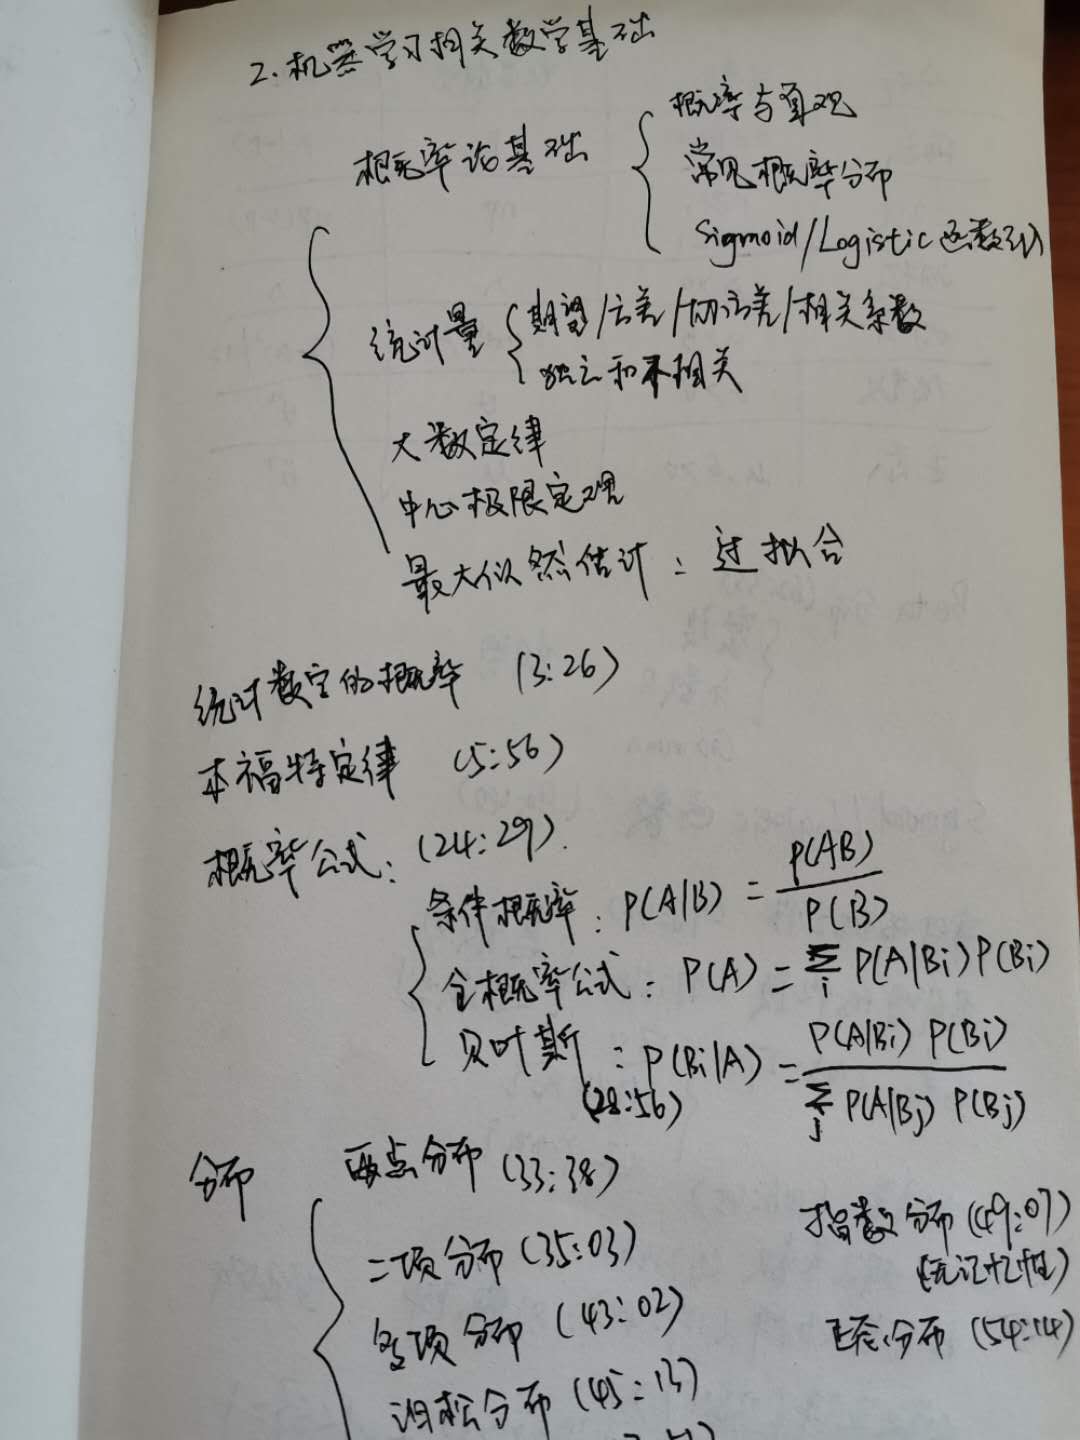 2. 机器学习相关数学基础
概率论基础
概率与直观
常见概率分布
Sigmoid/Logistic 函数引入
统计量
期望/方差/协方差/相关系数
独立和不相关
大数定律
中心极限定理
最大似然估计：过拟合
统计数字的概率 (3:26)
本福特定律 (5:56)
概率公式：(24:29).
条件概率：P(A|B) = P(AB) / P(B)
全概率公式：P(A) = Σi P(A|Bi) P(Bi)
贝叶斯：P(Bi|A) = P(A|Bi) P(Bi) / Σj P(A|Bj) P(Bj)
(28:56)
分布
两点分布 (33:38)
二项分布 (35:03)
多项分布 (43:02)
泊松分布 (45:13)
指数分布 (49:07)
(无记忆性)
正态分布 (54:14)